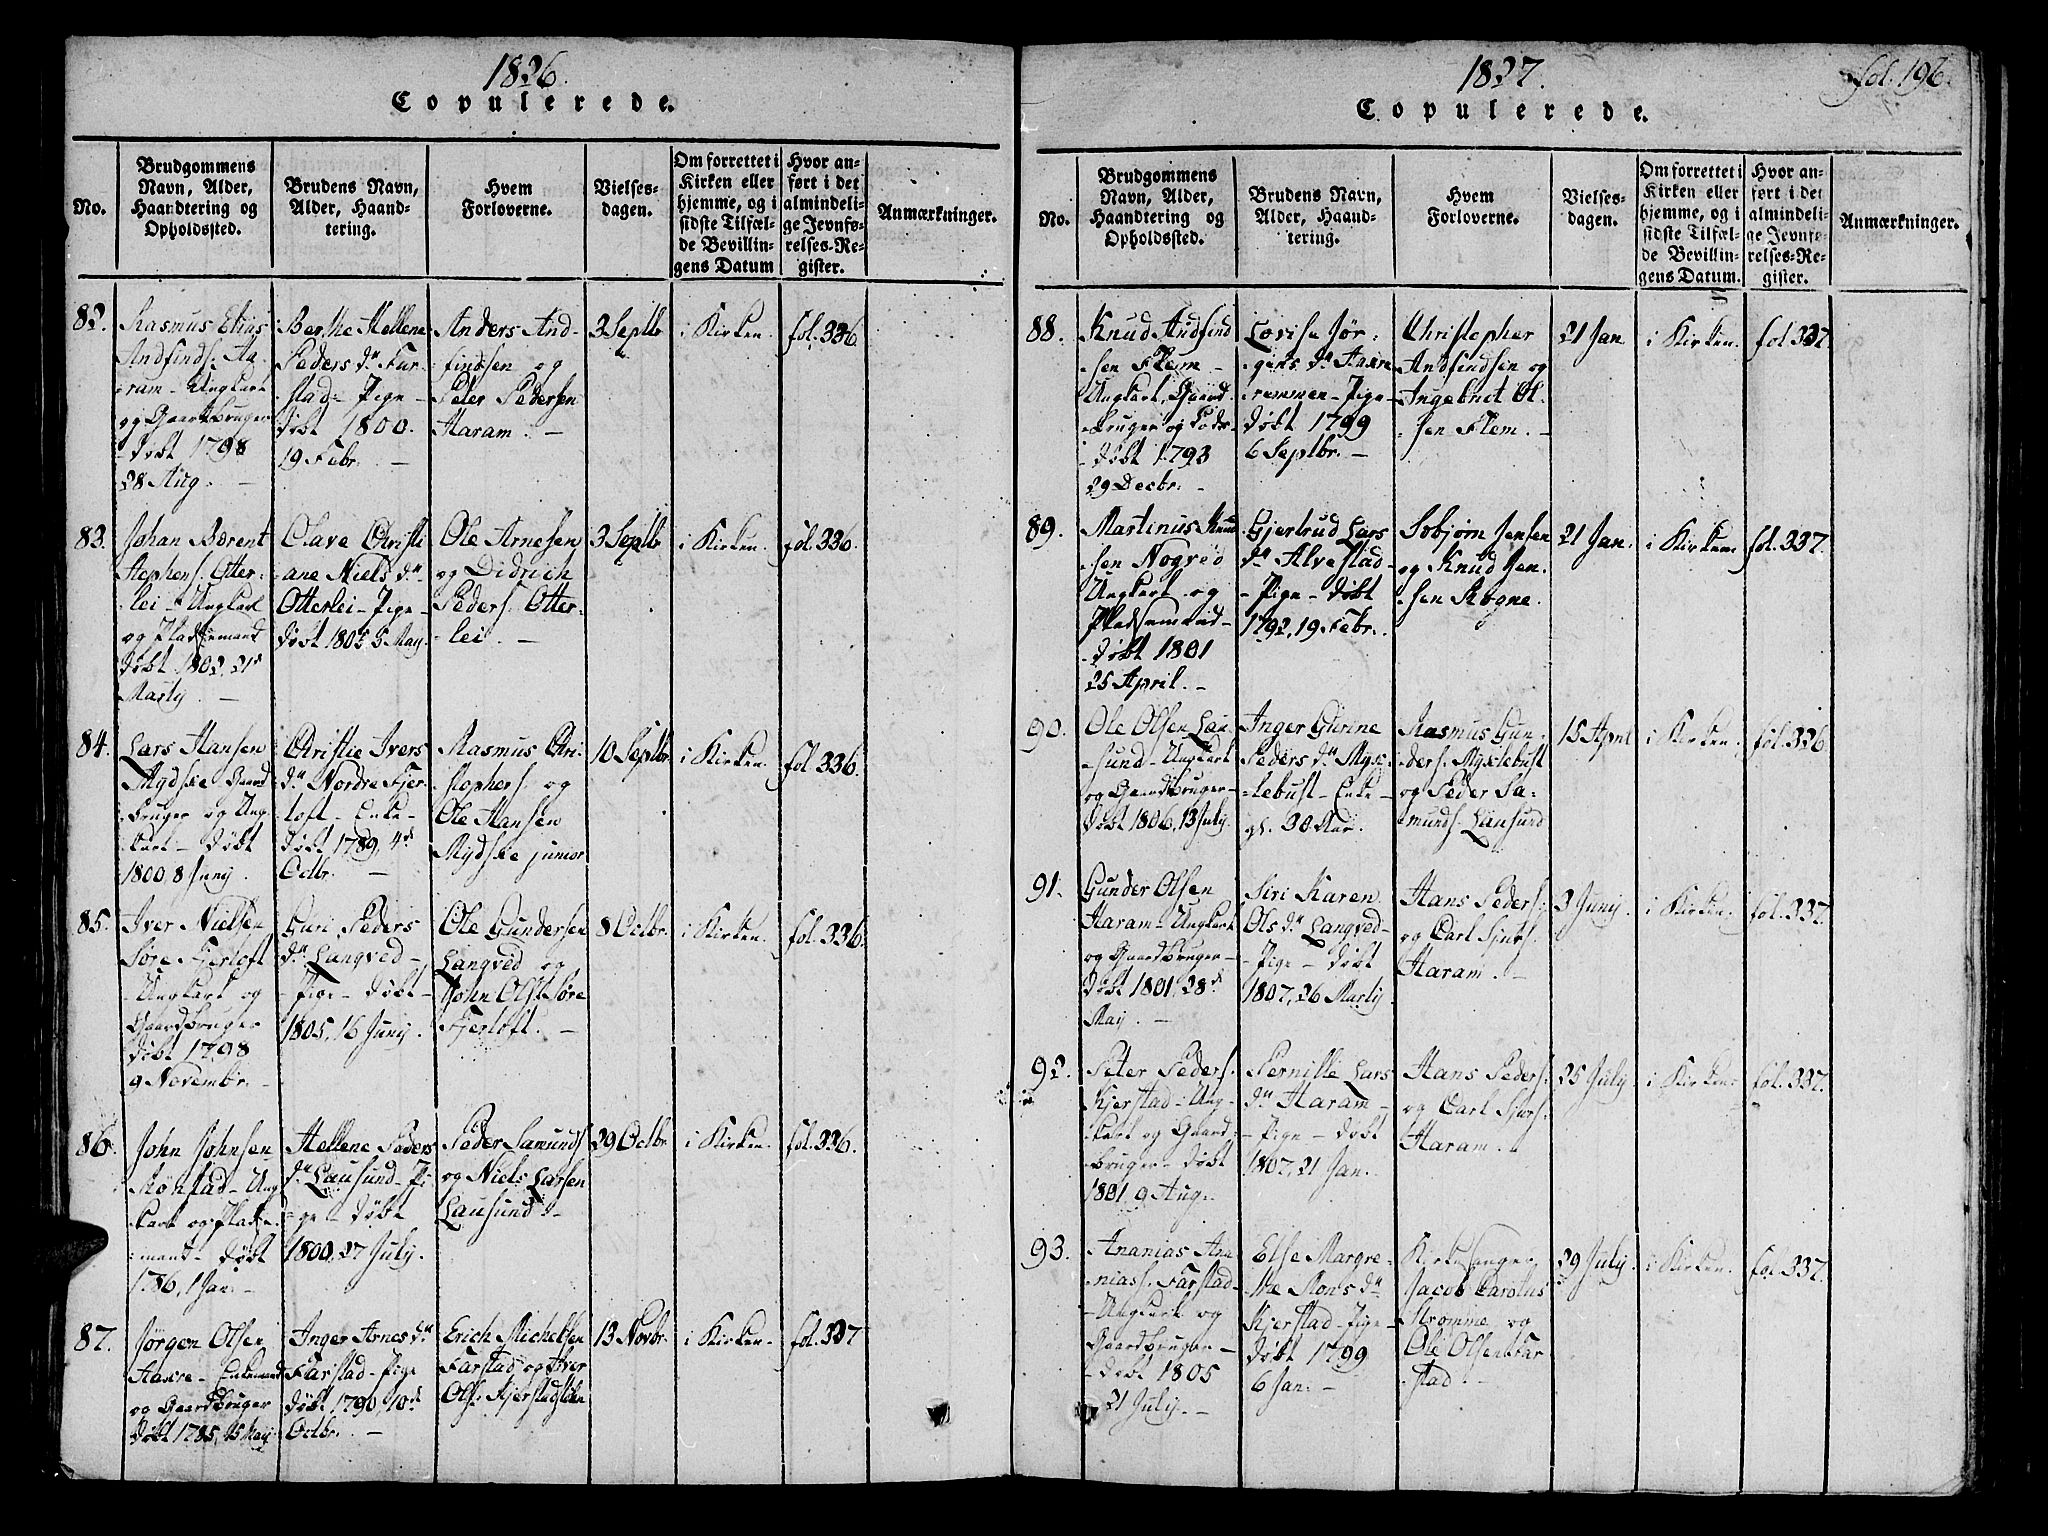 1826.
Copulerede.
No.
Brudgommens
Navn, Alder,
Haandtering og
Opholdssted.
Brudens Navn,
Alder, Haand-
tering.
Hvem
Forloverne.
Vielses-
dagen.
Om forrettet i
Kirken eller
hjemme, og i
sidste Tilfæl-
de Bevillin-
gens Datum
Hvor an-
ført i det
almindeli-
ge Jevnfø-
relses-Re-
gister.
Anmærkninger.
82.
Rasmus Elias
Andfinds: Ha-
ram - Ungkarl
og Gaardbruger
- Døbt 1798
28 Aug. -
Berthe Hellene
Peders dr Far-
stad - Pige -
Døbt 1800.
19 Febr. -
Anders And-
findsen og
Peter Pedersen
Haram. -
3 Septb
i Kirken.
fol. 336
83.
Johan Berent
Stephens. Otter-
lei - Ungkarl
og Pladsemand
Døbt 1802, 21de
Martij. -
Olave Christi
ane Niels dr
Otterlei - Pige -
Døbt 1805 5 May.
Ole Arnesen
og Didrich
Peders. Otter-
lei. -
3 Septb
i Kirken.
fol. 336.
84.
Lars Hansen
Mydske Gaard
bruger og Ung-
karl - Døbt
1800, 8 Junj.
Christie Ivers
dr Nordre Fjer-
toft - Enke -
Døbt 1789, 4de
Octbr. -
Rasmus Chri-
stophers. og
Ole Hansen
Mydske junior
10 Septbr.
i Kirken.
fol 336.
85.
Iver Nielsen
Søre Fjertoft
- Ungkarl og
Gaardbruger
Døbt 1798
9 Novembr. -
Guri Peders
dr Langved -
- Pige - Døbt -
1805, 16 Junij.
Ole Gundersen
Langved og
John Ols. Søre
Fjertoft. -
8 Octbr.
i Kirken.
fol. 336.
86.
John Johnsen
Rønstad - Ung
karl og Pladse-
mand - Døbt
1786, 1 Jan. -
Hellene Peders
dr Lausund - Pi-
ge - Døbt
1800, 27 July.
Peder Samunds
og Niels Larsen
Lausund. -
29 Octbr.
i Kirken.
fol. 336.
87.
Jørgen Olsen
- Enkemand
og Gaardbruger
Døbt 1785, 15 Maij
Inger Arnes dr
Farstad - Pige
Døbt 1790, 10de
Octbr. -
Erich Michelsen
Farstad og Iver
Ols. Kjerstad
13 Novbr.
i Kirken.
fol. 337
1827.
Fol. 196.
Copulerede.
No.
Brudgommens
Navn, Alder,
Haandtering og
Opholdssted.
Brudens Navn,
Alder, Haand-
tering.
Hvem
Forloverne.
Vielses-
dagen.
Om forrettet i
Kirken eller
hjemme, og i
sidste Tilfæl-
de Bevillin-
gens Datum.
Hvor an-
ført i det
almindeli-
ge Jevnfø-
relses-Re-
gister.
Anmærkninger.
88.
Knud Andfind
sen Flem -
Ungkarl, Gaard
bruger og
- Døbt 1793
29 Decbr. -
Lovise Jør-
gens dr
- Pige -
Døbt 1799
6 Septbr. -
Christopher
Andfindsen og
Ingebrit Ol-
sen Flem. -
21 Jan
i Kirken.
fol 337
89.
Martinus Knud
sen Nogvø
Ungkarl og
Pladsemand -
- Døbt 1801
25 April. -
Gjertrud Lars
dr Alvestad -
- Pige - Døbt
1792, 19 Febr.
Sobjørn Jensen
og Knud Jen-
sen Rogne.
21 Jan.
i Kirken.
fol. 337.
90.
Ole Olsen Lau
sund - Ungkarl
og Gaardbruger -
Døbt 1806, 13 July.
Inger Gurine
Peders dr Myk-
lebust - Enke -
gl. 30 Aar.
Rasmus Gun-
ders. Myklebust
og Peder Sa-
munds. Lausund
15 April
i Kirken.
fol. 336
91.
Gunder Olsen
Haram - Ungkarl
og Gaardbruger -
Døbt 1801, 28de
May. -
Siri Karen
Ols dr Langved -
- Pige - Døbt
1807, 26 Martij
Hans Peders.
og Carl Sjurs.
Haram. -
3 Junij.
i Kirken.
fol. 337.
92.
Peter Peders.
Kjerstad - Ung-
karl og Gaard-
bruger - Døbt
1801 9 Aug. -
Pernille Lars
dr Haram -
- Pige - Døbt
1807, 21 Jan.
Hans Peders.
og Carl Sjurs.
Haram.
25 July
i Kirken.
fol. 337.
93.
Ananias Ana
nias. Farstad -
- Ungkarl og
Gaardbruger -
- Døbt 1805
21 July. -
Else Margre-
the Mons dr
Kjerstad - Pige -
Døbt 1799
6 Jan. -
Kirkesanger
Jacob Carolus
Strømme og
Ole Olsen Far
stad. -
29 July.
i Kirken.
fol. 337.